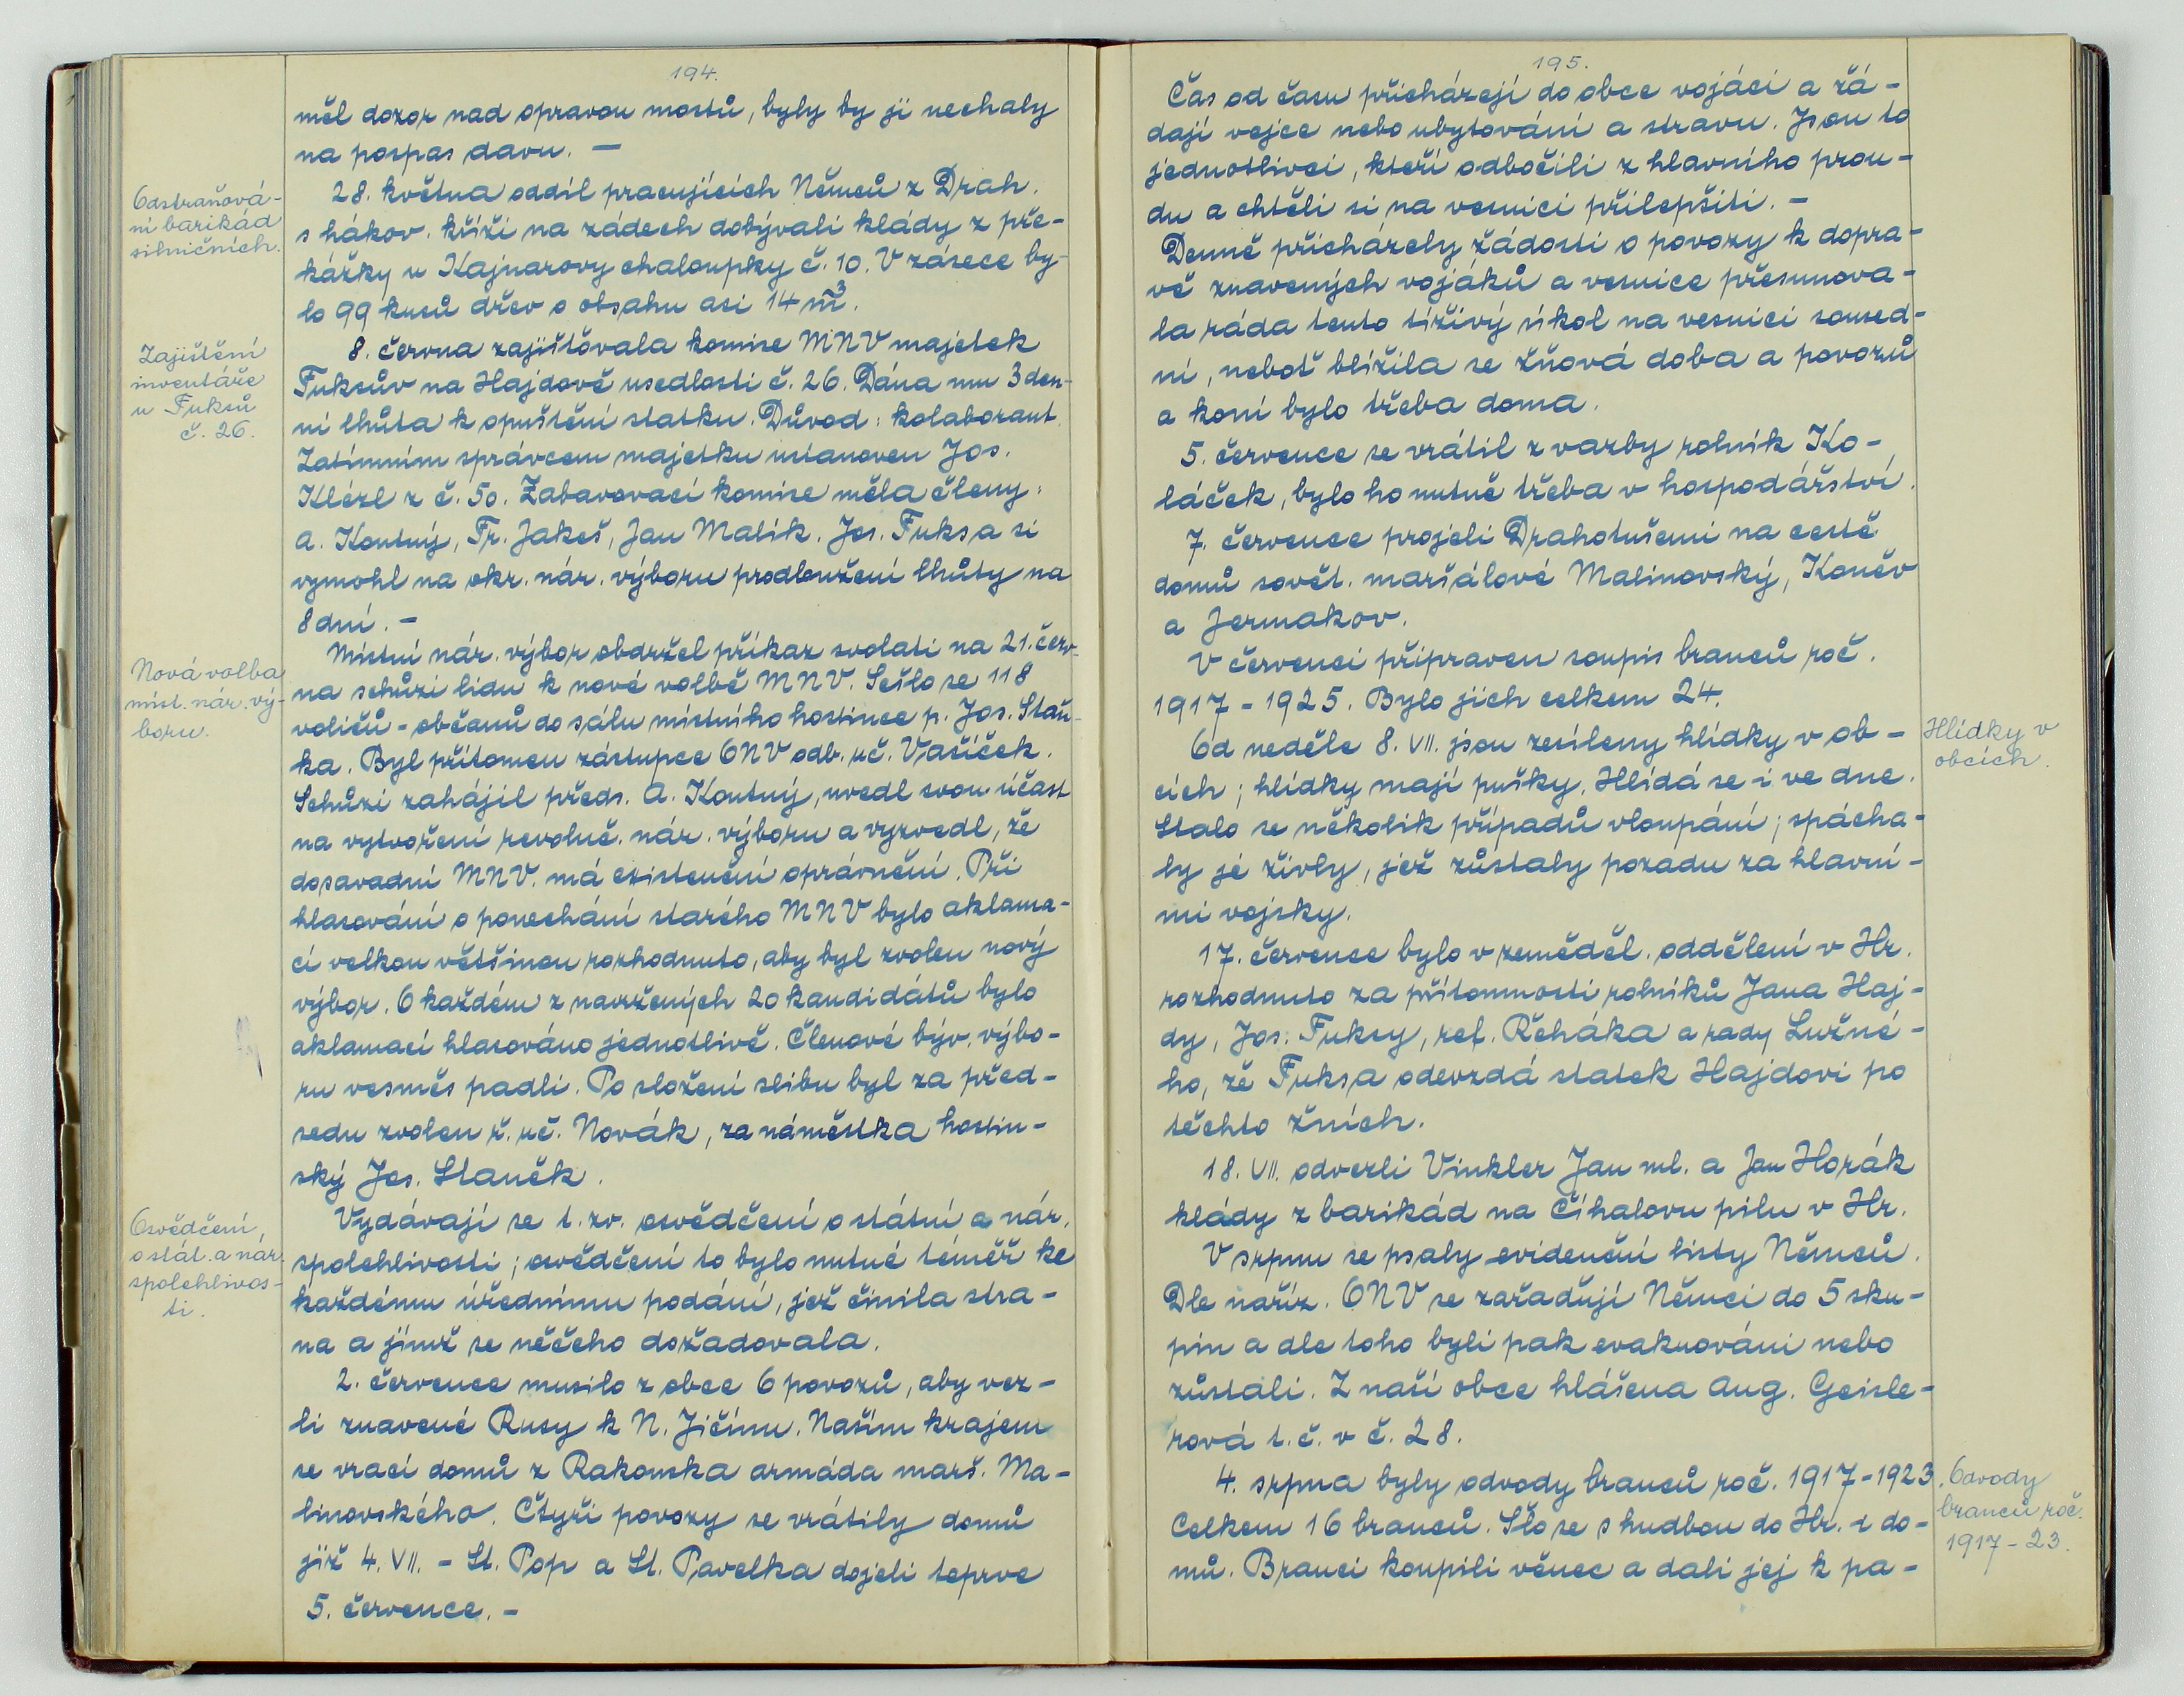 194.
měl dozor nad opravou mostů, byly by ji nechaly
na pospas davu. —
Odstraňová-
ní barikád
silničních.
28. května oddíl pracujících Němců z Drah.
s hákov. kříži na zádech dobývali klády z pře-
kážky u Kajnarovy chaloupky č. 10. V zásece by-
lo 99 kusů dřev o obsahu asi 14 m³.
Zajištění
inventáře
u Fuksů
č. 26.
8. června zajišťovala komise MNV majetek
Fuksův na Hajdově usedlosti č. 26. Dána mu 3 den-
ní lhůta k opuštění statku. Důvod: kolaborant.
Zatímním správcem majetku ustanoven Jos.
Klézl z č. 50. Zabavovací komise měla členy:
A. Koutný, Fr. Jakeš, Jan Malík. Jos. Fuksa si
vymohl na okr. nár. výboru prodloužení lhůty na
8 dní. —
Nová volba
míst. nár. vý-
boru.
Místní nár. výbor obdržel příkaz svolati na 21. červ-
na schůzi lidu k nové volbě MNV. Sešlo se 118
voličů - občanů do sálu místního hostince p. Jos. Staň-
ka. Byl přítomen zástupce ONV odb. uč. Vašíček.
Schůzi zahájil předs. A. Koutný, uvedl svou účast
na vytvoření revoluč. nár. výboru a vyzvedl, že
dosavadní MNV. má existenční oprávnění. Při
hlasování o ponechání starého MNV bylo aklama-
cí velkou většinou rozhodnuto, aby byl zvolen nový
výbor. O každém z navržených 20 kandidátů bylo
aklamací hlasováno jednotlivě. Členové býv. výbo-
ru vesměs padli. Po složení slibu byl za před-
sedu zvolen ř. uč. Novák, za náměstka hostin-
ský Jos. Staněk.
Osvědčení,
o stát. a nár.
spolehlivos-
ti.
Vydávají se t. zv. osvědčení o státní a nár.
spolehlivosti; osvědčení to bylo nutné téměř ke
každému úřednímu podání, jež činila stra-
na a jímž se něčeho dožadovala.
2. července musilo z obce 6 povozů, aby vez-
li znavené Rusy k N. Jičínu. Naším krajem
se vrací domů z Rakouska armáda marš. Ma-
linovského. Čtyři povozy se vrátily domů
již 4. VII. - St. Pop a St. Pavelka dojeli teprve
5. července. —
195.
Čas od času přicházejí do obce vojáci a žá-
dají vejce nebo ubytování a stravu. Jsou to
jednotlivci, kteří odbočili z hlavního prou-
du a chtěli si na vesnici přilepšiti. —
Denně přicházely žádosti o povozy k dopra-
vě znavených vojáků a vesnice přesunova-
la ráda tento tíživý úkol na vesnici soused-
ní, neboť blížila se žňová doba a povozů
a koní bylo třeba doma.
5. července se vrátil z vazby rolník Ko-
láček, bylo ho nutně třeba v hospodářství.
7. července projeli Drahotušemi na cestě
domů sovět. maršálové Malinovský, Koněv
a Jermakov.
V červenci připraven soupis branců roč.
1917 - 1925. Bylo jich celkem 24.
Hlídky v
obcích.
Od neděle 8. VII. jsou zesíleny hlídky v ob-
cích; hlídky mají pušky. Hlídá se i ve dne.
Stalo se několik případů vloupání; spácha-
ly je živly, jež zůstaly pozadu za hlavní-
mi vojsky.
17. července bylo v zeměděl. oddělení v Hr.
rozhodnuto za přítomnosti rolníků Jana Haj-
dy, Jos. Fuksy, ref. Řeháka a rady Lužné-
ho, že Fuksa odevzdá statek Hajdovi po
těchto žních.
18. VII. odvezli Vinkler Jan ml. a Jan Horák
klády z barikád na Číhalovu pilu v Hr.
V srpnu se psaly evidenční listy Němců.
Dle naříz. ONV se zařaďují Němci do 5 sku-
pin a dle toho byli pak evakuováni nebo
zůstali. Z naší obce hlášena Aug. Geisle-
rová t. č. v č. 28.
Odvody
branců roč.
1917 - 23.
4. srpna byly odvody branců roč. 1917-1923.
Celkem 16 branců. Šlo se s hudbou do Hr. i do-
mů. Branci koupili věnec a dali jej k pa-